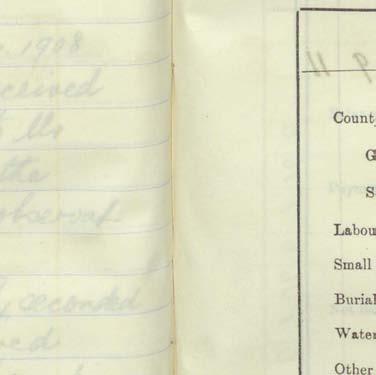 1908
ceived
Mr
the
observat
seconded
Count
G
S
Labou
Small
Burial
Water
Other